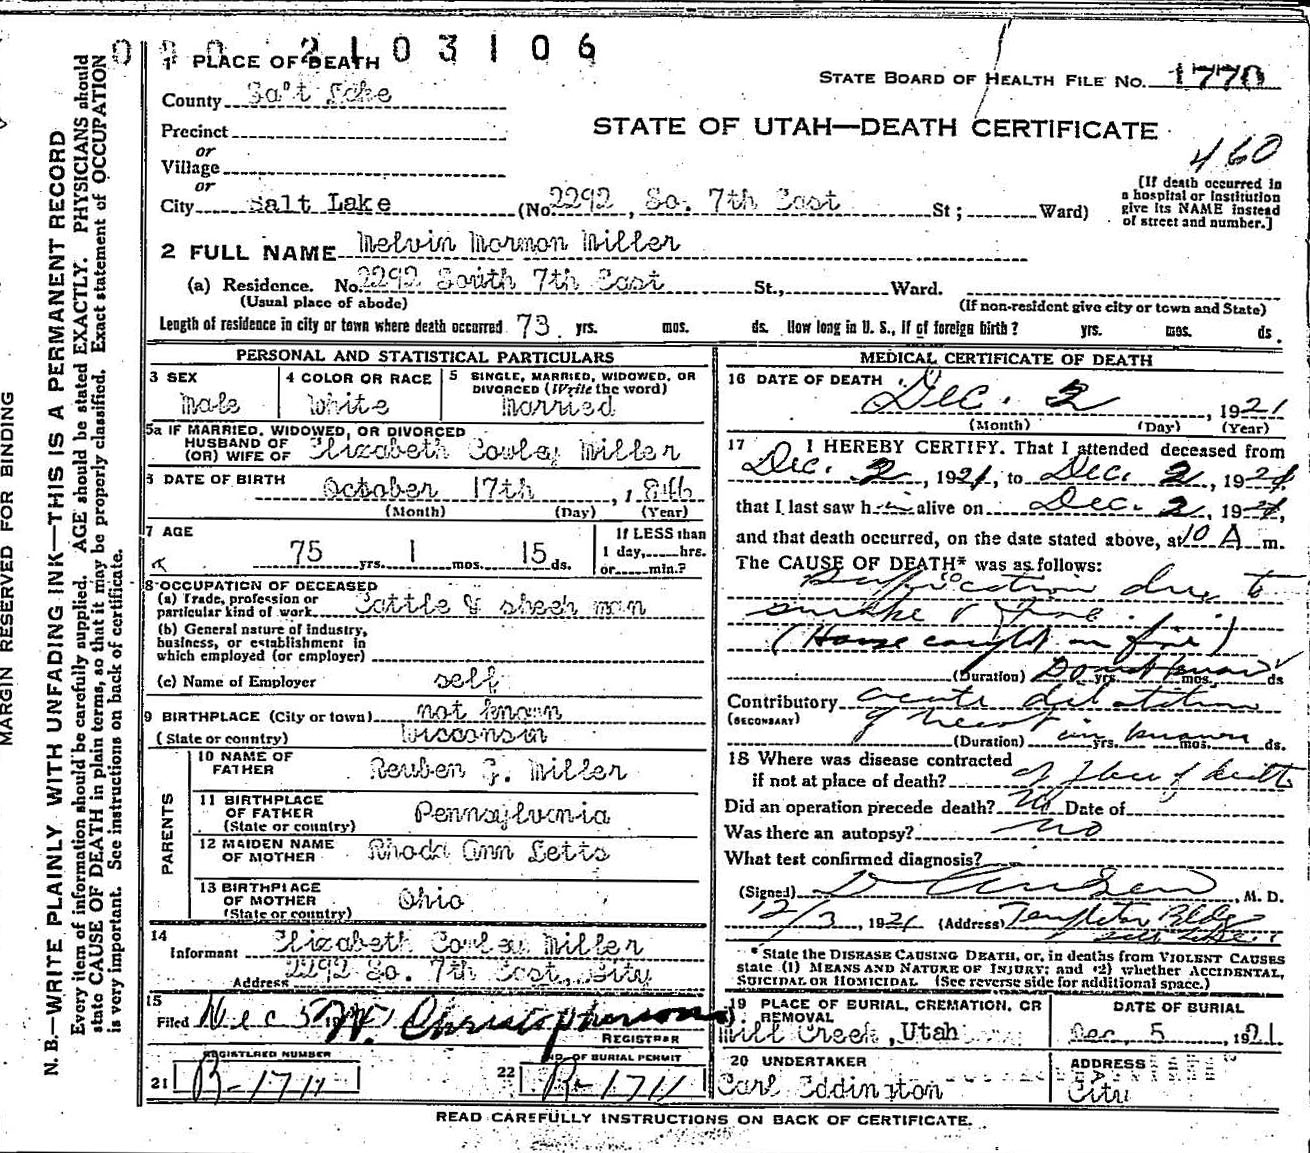 2103106
1 PLACE OF DEATH
STATE BOARD OF HEALTH FILE NO. 1770
County Salt Lake
STATE OF UTAH—DEATH CERTIFICATE
Precinct
or
460
Village
or
City Salt Lake (No. 2292, So. 7th East St; Ward)
[If death occurred in
a hospital or institution
give its NAME instead
of street and number.]
2 FULL NAME Melvin Mormon Miller
(a) Residence. No. 2292 South 7th East St., Ward.
(Usual place of abode) (If non-resident give city or town and State)
Length of residence in city or town where death occurred 73 yrs. mos. ds. How long in U. S., if of foreign birth? yrs. mos. ds.
PERSONAL AND STATISTICAL PARTICULARS
3 SEX
Male
4 COLOR OR RACE
White
5 SINGLE, MARRIED, WIDOWED, OR
DIVORCED (Write the word)
Married
5a IF MARRIED, WIDOWED, OR DIVORCED
HUSBAND OF
(OR) WIFE OF Elizabeth Cowley Miller
6 DATE OF BIRTH October 17th, 1846
(Month) (Day) (Year)
7 AGE
75 yrs. 1 mos. 15 ds.
If LESS than
1 day, hrs.
or min.?
8 OCCUPATION OF DECEASED
(a) Trade, profession or
particular kind of work Cattle & sheep man
(b) General nature of industry,
business, or establishment in
which employed (or employer)
(c) Name of Employer self
9 BIRTHPLACE (City or town) not known
(State or country) Wisconsin
PARENTS
10 NAME OF
FATHER Reuben G. Miller
11 BIRTHPLACE
OF FATHER Pennsylvania
(State or country)
12 MAIDEN NAME
OF MOTHER Rhoda Ann Letts
13 BIRTHPLACE
OF MOTHER Ohio
(State or country)
14
Informant Elizabeth Cowley Miller
Address 2292 So. 7th East, City
15
Filed Dec 5 19 W. Christopherson
REGISTRAR
REGISTERED NUMBER
21 R-1711
NO. OF BURIAL PERMIT
22 R-1711
MEDICAL CERTIFICATE OF DEATH
16 DATE OF DEATH Dec. 2, 1921
(Month) (Day) (Year)
17 I HEREBY CERTIFY. That I attended deceased from
Dec. 2, 1921, to Dec. 2, 1921,
that I last saw him alive on Dec. 2, 1921,
and that death occurred, on the date stated above, at 10 A m.
The CAUSE OF DEATH* was as follows:
Suffocation due to
smoke & fire.
(House caught on fire)
(Duration) Do not know yrs. mos. ds
Contributory acute dilatation
(SECONDARY) of heart
(Duration) unknown yrs. mos. ds.
18 Where was disease contracted
if not at place of death? at place of death
Did an operation precede death? No Date of
Was there an autopsy? no
What test confirmed diagnosis?
(Signed) M. D.
12/3, 1921 (Address) Templeton Bldg
Salt Lake
* State the DISEASE CAUSING DEATH, or, in deaths from VIOLENT CAUSES
state (1) MEANS AND NATURE OF INJURY; and (2) whether ACCIDENTAL,
SUICIDAL OR HOMICIDAL (See reverse side for additional space.)
19 PLACE OF BURIAL, CREMATION, OR
REMOVAL
Mill Creek, Utah
DATE OF BURIAL
Dec. 5 1921
20 UNDERTAKER
Carl Eddington
ADDRESS
City
READ CAREFULLY INSTRUCTIONS ON BACK OF CERTIFICATE.
MARGIN RESERVED FOR BINDING
N. B.—WRITE PLAINLY WITH UNFADING INK—THIS IS A PERMANENT RECORD
Every item of information should be carefully supplied. AGE should be stated EXACTLY. PHYSICIANS should
state CAUSE OF DEATH in plain terms, so that it may be properly classified. Exact statement of OCCUPATION
is very important. See instructions on back of certificate.